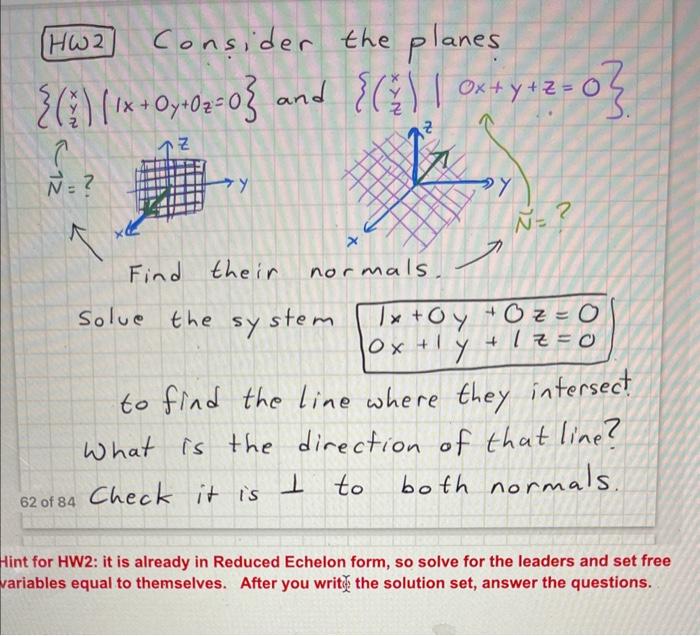 HW2 Consider the planes
{(x y z) | 1x + 0y + 0z = 0} and {(x y z) | 0x + y + z = 0}.
N = ?
z
y
x
z
y
x
N = ?
Find their normals.
Solve the system
1x + 0y + 0z = 0
0x + 1y + 1z = 0
to find the line where they intersect.
What is the direction of that line?
62 of 84
Check it is ⊥ to both normals.
Hint for HW2: it is already in Reduced Echelon form, so solve for the leaders and set free
variables equal to themselves. After you write the solution set, answer the questions.